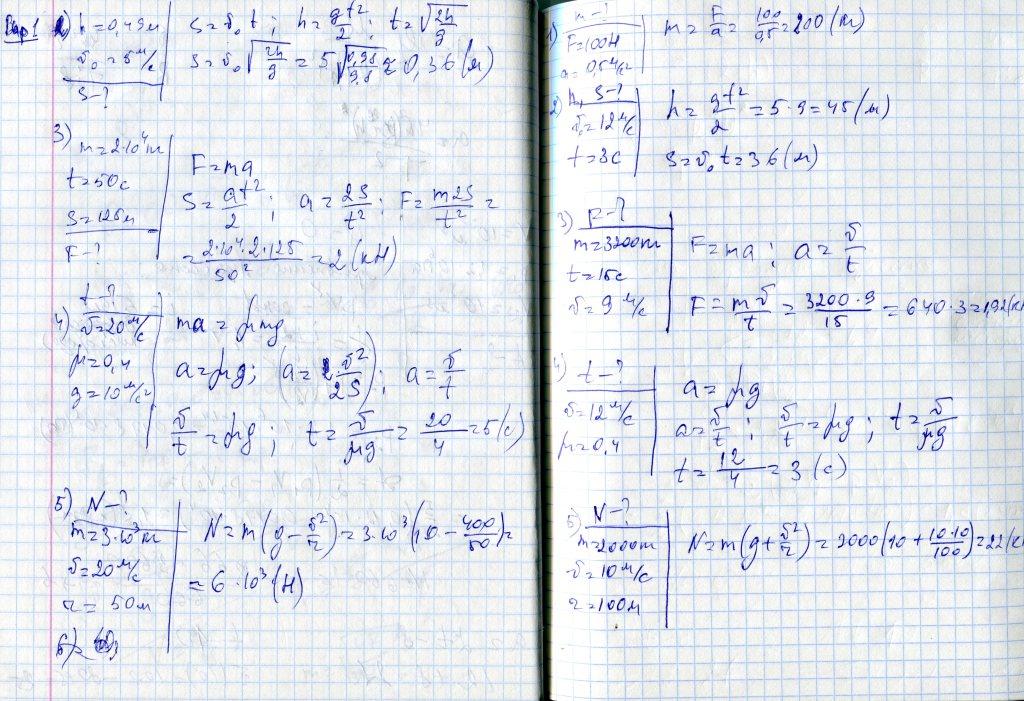 Вар 1
h = 0,49 м
v₀ = 5 м/с
S – ?
S = v₀ t ; h = gt²/2 ; t = √(2h/g)
S = v₀ √(2h/g) = 5 √(0,98/9,8) ≈ 0,36 (м)
3)
m = 2·10⁴ кг
t = 50 с
S = 125 м
F – ?
F = ma
S = at²/2 ; a = 2S/t² ; F = m2S/t² =
= 2·10⁴·2·125/50² = 2 (кН)
4)
t – ?
v = 20 м/с
μ = 0,4
g = 10 м/с²
ma = μmg
a = μg ; (a = v²/2S) ; a = v/t
v/t = μg ; t = v/μg = 20/4 = 5 (с)
5) N – ?
m = 3·10³ кг
v = 20 м/с
r = 50 м
N = m(g – v²/r) = 3·10³ (10 – 400/50) =
= 6·10³ (Н)
6)
1) m – ?
F = 100 Н
a = 0,5 м/с²
m = F/a = 100/0,5 = 200 (кг)
2) h, S – ?
v₀ = 12 м/с
t = 3 с
h = gt²/2 = 5·9 = 45 (м)
S = v₀ t = 36 (м)
3) F – ?
m = 3200 кг
t = 15 с
v = 9 м/с
F = ma ; a = v/t
F = mv/t = 3200·9/15 = 640·3 = 1,92 (к
4) t – ?
v = 12 м/с
μ = 0,4
a = μg
a = v/t ; v/t = μg ; t = v/μg
t = 12/4 = 3 (с)
5) N – ?
m = 2000 кг
v = 10 м/с
r = 100 м
N = m(g + v²/r) = 2000 (10 + 10·10/100) = 22 (к